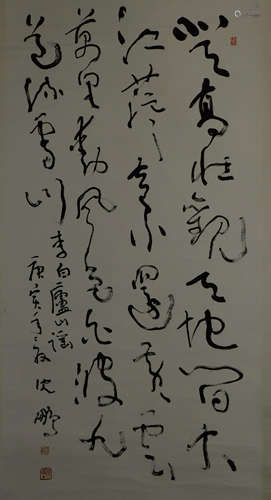 登高壯觀天地間大
江茫々去不還黃雲
萬里動風色白波九
道流雪山
李白廬山謠
庚寅 沈鵬